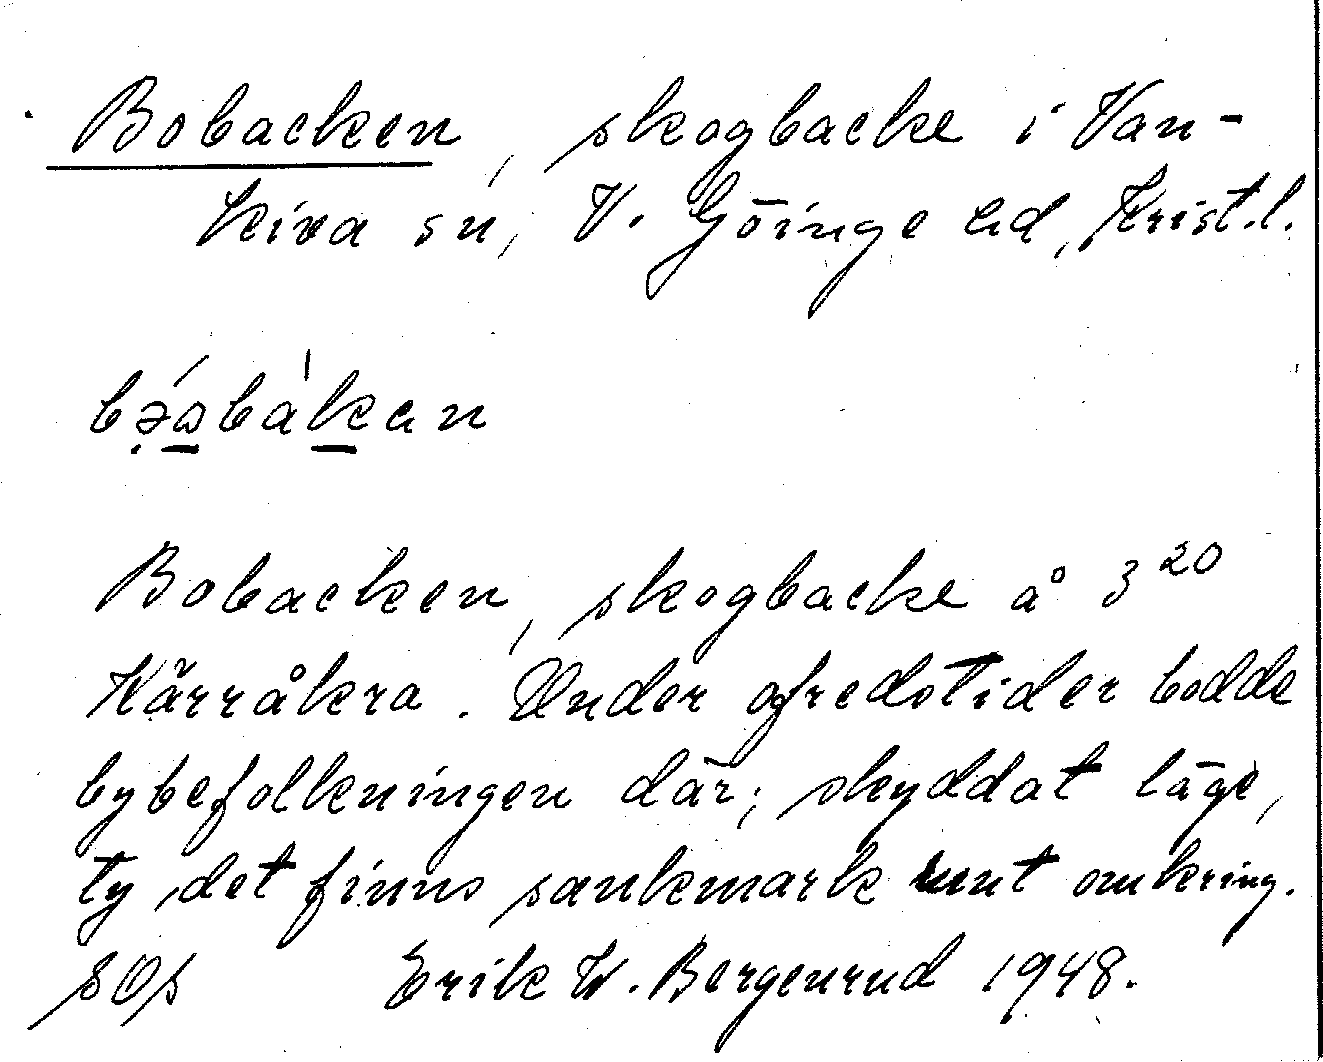 Bobacken, skogbacke i Van-
kiva sn, V. Göinge hd, Krist.l.
Bobacken, skogbacke å 3²⁰
Kärråkra. Under ofredstider bodde
bybefolkningen där; skyddat läge,
ty det finns sankmark runt omkring.
SOS Erik W. Bergenrud 1948.